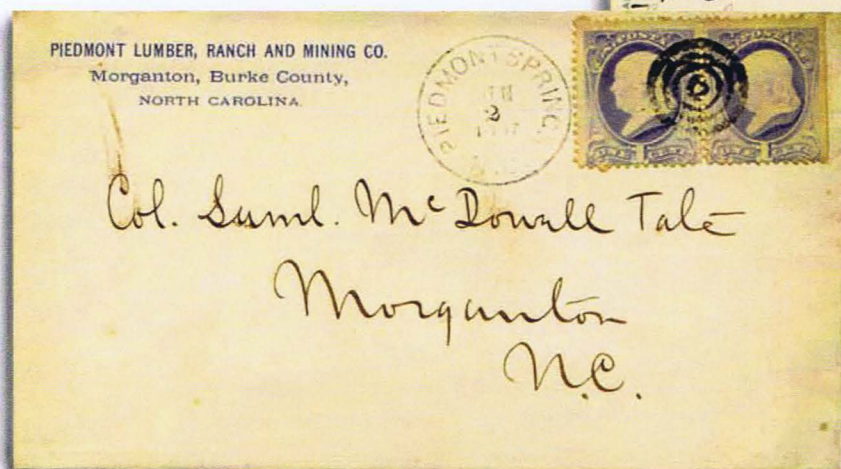 PIEDMONT LUMBER, RANCH AND MINING CO.
Morganton, Burke County,
NORTH CAROLINA.
PIEDMONT SPRINGS
2
U.S. POSTAGE
ONE CENT 1
1 ONE CENT 1
Col. Saml. McDowall Tate
Morganton
N.C.